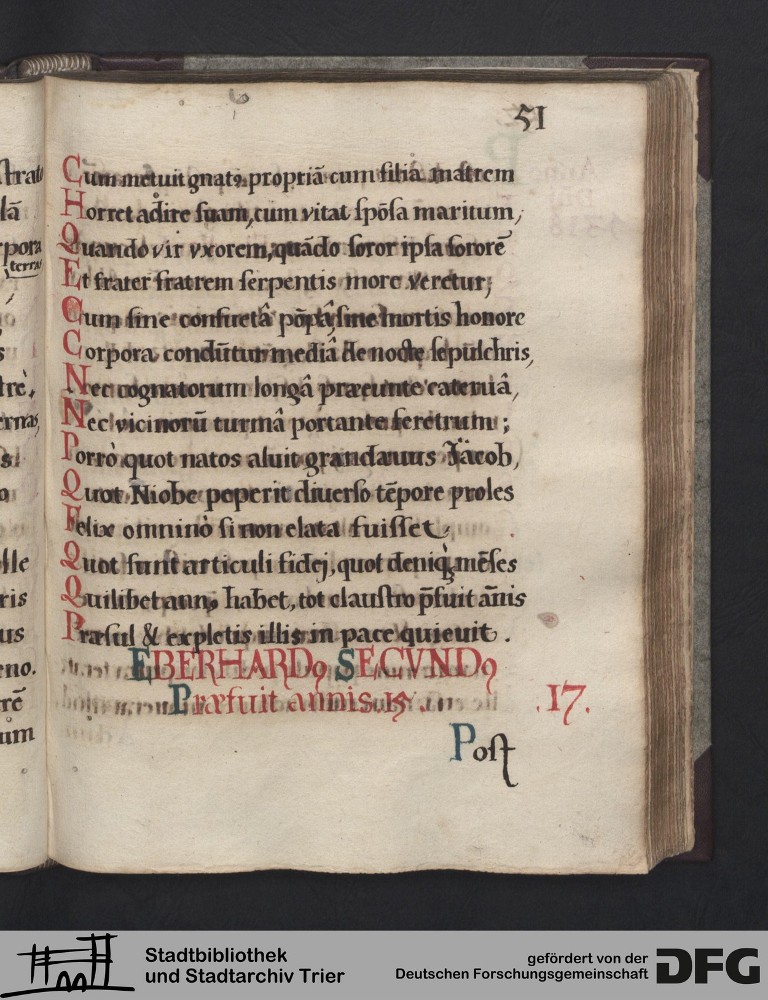 51
Cum metuit gnatꝰ propriã cum filia matrem
Horret adire suam, cum vitat spõsa maritum,
Quando vir vxorem, quãdo soror ipsa sororẽ
Et frater fratrem serpentis more veretur;
Cum sine consuetâ põpâ, sine mortis honore
Corpora condũtur mediâ de nocte sepulchris,
Nec cognatorum longâ præeunte cateruâ,
Nec vicinorũ turmâ portante feretrum;
Porrò quot natos aluit grandæuus Jacob,
Quot Niobe peperit diuerso tẽpore proles
Felix omninò si non elata fuisset,
Quot sunt articuli fidej, quot deniqꝫ mẽses
Quilibet annꝰ habet, tot claustro p̃fuit añis
Præsul & expletis illis in pace quieuit.
EBERHARDꝰ SECVNDꝰ
Præfuit annis. 15. .17.
Post
Stadtbibliothek
und Stadtarchiv Trier
gefördert von der
Deutschen Forschungsgemeinschaft
DFG